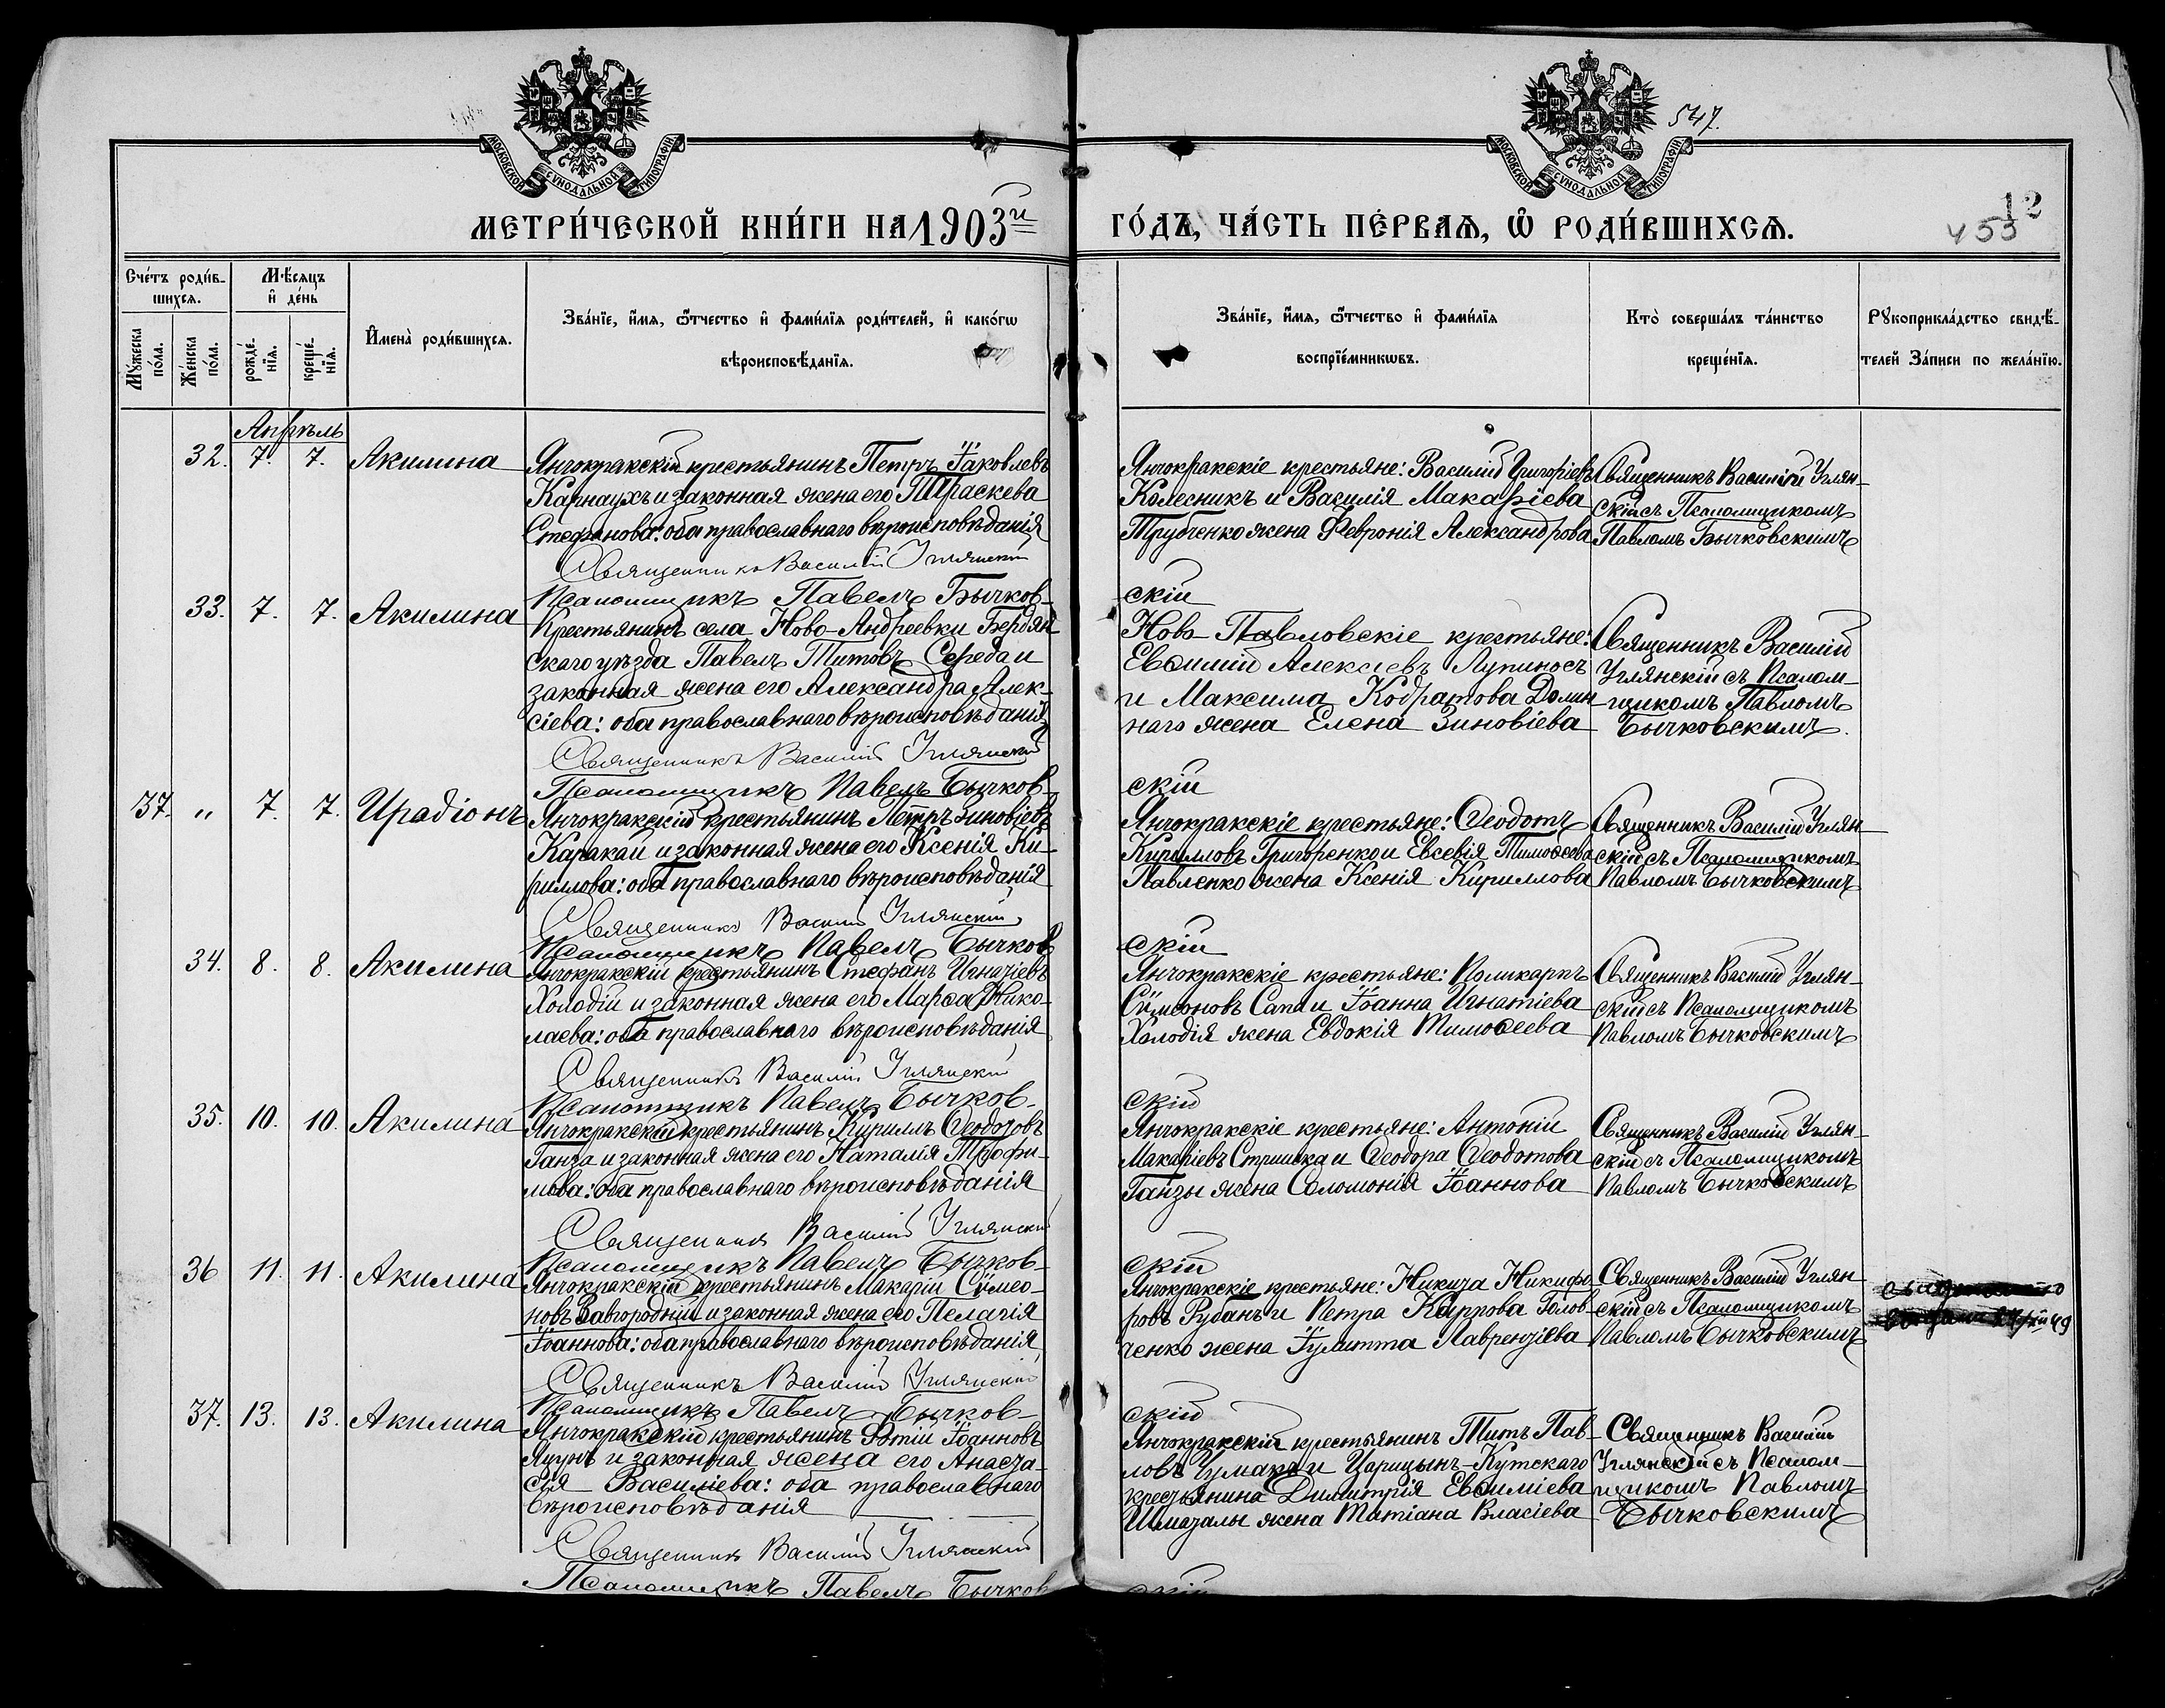 МОСКОВСКОЙ СУНОДАЛЬНОЙ ТИПОГРАФІИ
МОСКОВСКОЙ СУНОДАЛЬНОЙ ТИПОГРАФІИ
547.
12
453
МЕТРИ́ЧЕСКОЙ КНИ́ГИ НА 1903й ГО́ДЪ, ЧА́СТЬ ПЕ́РВАѦ, Ѿ РОДИ́ВШИХСѦ.
Сче́тъ роди́в-
шихсѧ.
Мꙋ́жеска
по́ла.
Же́нска
по́ла.
Мѣ́сѧцъ
и҆ де́нь
рожде́-
нїѧ.
креще́-
нїѧ.
И҆мена̀ роди́вшихсѧ.
Зва́нїе, и҆́мѧ, ѻ҆́тчество и҆ фами́лїѧ роди́телей, и҆ како́гѡ
вѣроисповѣ́данїѧ.
Зва́нїе, и҆́мѧ, ѻ҆́тчество и҆ фами́лїѧ
воспрїе́мникѡвъ.
Кто̀ соверша́лъ та́инство
креще́нїѧ.
Рꙋкоприкла́дство свидѣ́-
телей За́писи по жела́нїю.
Апрѣль
32. 7. 7. Акилина
Янчокракскій крестьянинъ Петръ Іаковлевъ
Карнаухъ и законная жена его Параскева
Стефанова: оба православнаго вѣроисповѣданія
Священникъ Василій Углянскій
Псаломщикъ Павелъ Бычков-
скій
Янчокракскіе крестьяне: Василій Григоріевъ
Колесникъ и Василія Макаріева
Трубченко жена Февронія Александрова
Священникъ Василій Углян-
скій съ Псаломщикомъ
Павломъ Бычковскимъ
33. 7. 7. Акилина
Крестьянинъ села Ново-Андреевки Бердян-
скаго уѣзда Павелъ Титовъ Середа и
законная жена его Александра Алек-
сіева: оба православнаго вѣроисповѣданія
Священникъ Василій Углянскій
Псаломщикъ Павелъ Бычков-
скій
Ново-Павловскіе крестьяне:
Евѳимій Алексіевъ Лупиносъ
и Максима Кодратова Долин-
наго жена Елена Зиновіева
Священникъ Василій
Углянскій съ Псалом-
щикомъ Павломъ
Бычковскимъ.
37. " 7. 7. Иродіонъ
Янчокракскій крестьянинъ Петръ Зиновіевъ
Каракай и законная жена его Ксенія Ки-
риллова: оба православнаго вѣроисповѣданія
Священникъ Василій Углянскій
Псаломщикъ Павелъ Бычков-
скій
Янчокракскіе крестьяне: Ѳеодотъ
Кирилловъ Григоренко и Евсевія Тимоѳеева
Павленко жена Ксенія Кириллова
Священникъ Василій Углян-
скій съ Псаломщикомъ
Павломъ Бычковскимъ
34. 8. 8. Акилина
Янчокракскій крестьянинъ Стефанъ Игнатіевъ
Холодій и законная жена его Марѳа Нико-
лаева: оба православнаго вѣроисповѣданія
Священникъ Василій Углянскій
Псаломщикъ Павелъ Бычков-
скій
Янчокракскіе крестьяне: Поликарпъ
Сѵмеоновъ Сапа и Іоанна Игнатіева
Холодія жена Евдокія Тимоѳеева
Священникъ Василій Углян-
скій съ Псаломщикомъ
Павломъ Бычковскимъ
35. 10. 10. Акилина
Янчокракскій крестьянинъ Кириллъ Ѳеодотовъ
Ганза и законная жена его Наталія Трофи-
мова: оба православнаго вѣроисповѣданія
Священникъ Василій Углянскій
Псаломщикъ Павелъ Бычков-
скій
Янчокракскіе крестьяне: Антоній
Макаріевъ Стришка и Ѳеодора Ѳеодотова
Ганзы жена Соломонія Іоаннова
Священникъ Василій Углян-
скій съ Псаломщикомъ
Павломъ Бычковскимъ
36 11. 11. Акилина
Янчокракскій крестьянинъ Макарій Сѵмео-
новъ Завгородній и законная жена его Пелагія
Іоаннова: оба православнаго вѣроисповѣданія
Священникъ Василій Углянскій
Псаломщикъ Павелъ Бычков-
скій
Янчокракскіе крестьяне: Никита Никифо-
ровъ Рубанъ и Петра Карпова Голов-
ченко жена Іулитта Лаврентіева
Священникъ Василій Углян-
скій съ Псаломщикомъ
Павломъ Бычковскимъ
37. 13. 13. Акилина
Янчокракскій крестьянинъ Фотій Іоанновъ
Яцунъ и законная жена его Анаста-
сія Василіева: оба православнаго
вѣроисповѣданія
Священникъ Василій Углянскій
Псаломщикъ Павелъ Бычков
скій
Янчокракскій крестьянинъ Титъ Пав-
ловъ Чумакъ и Царицынъ-Кутскаго
крестьянина Димитрія Евѳиміева
Шматалы жена Татіана Власіева
Священникъ Василій
Углянскій съ Псалом-
щикомъ Павломъ
Бычковскимъ